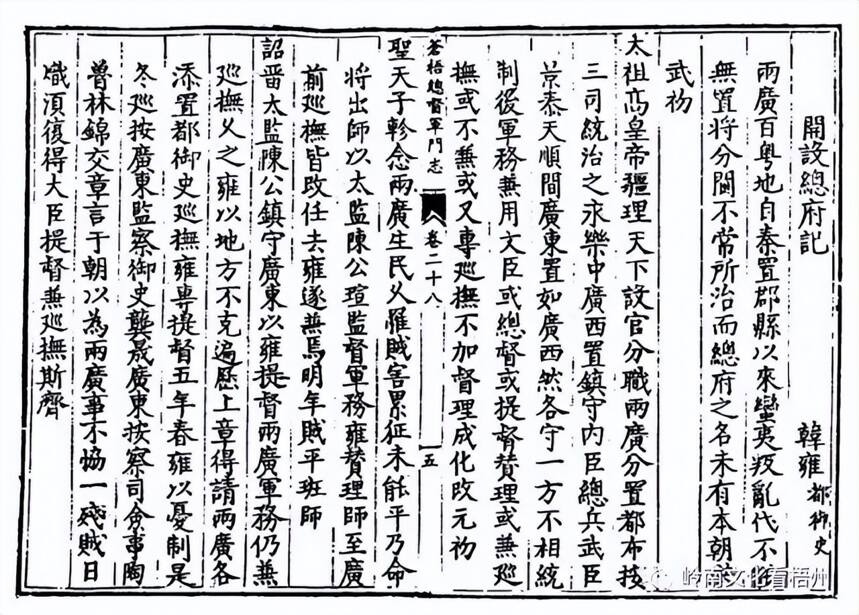 開設總府記 韓雍都御史
兩廣百粤地自秦置郡縣以來蠻夷叛亂代不能
無置将分閫不常所治而總府之名未有本朝
武初
太祖高皇帝疆理天下設官分職兩廣分置都布按
三司統治之永樂中廣西置鎮守内臣總兵武臣
景泰天順間廣東置如廣西然各守一方不相統
制後軍務兼用文臣或總督或提督賛理或兼廵
撫或不兼或又專廵撫不加督理成化改元初
蒼梧總督軍門志 卷二十八 一五
聖天子軫念兩廣生民久罹賊害累征未能平乃命
将出師以太監陳公瑄監督軍務雍賛理師至廣
前廵撫皆改任去雍遂兼焉明年賊平班師
詔畱太監陳公鎮守廣東以雍提督兩廣軍務仍兼
廵撫久之雍以地方不克遍歷上章得請兩廣各
添置都御史廵撫雍專提督五年春雍以憂制是
冬廵按廣東監察御史龔晟廣東按察司僉事陶
魯林錦交章言于朝以為兩廣事不協一殘賊日
熾湏復得大臣提督兼廵撫斯齊
岭南文化看梧州